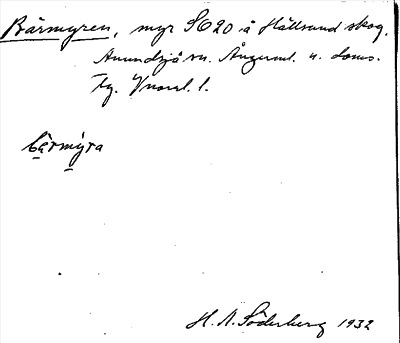 Bärmyren, myr SO 20 å Hällsand skog,
Anundsjö sn. Ångerml. n. doms.
Tg. Vnorrl. l.
bärmýra
H. N. Söderberg 1932